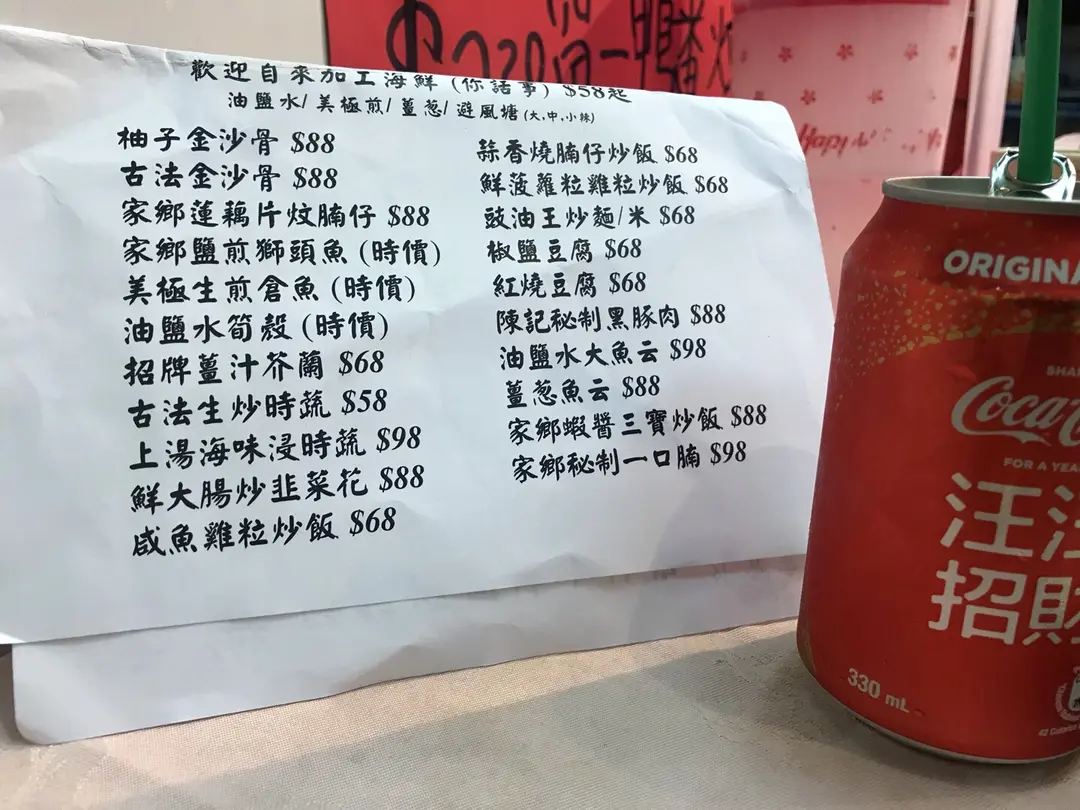 歡迎自來加工海鮮 (你話事) $58起
油鹽水/ 美極煎/ 薑葱/ 避風塘 (大,中,小辣)
柚子金沙骨 $88
古法金沙骨 $88
家鄉蓮藕片炆腩仔 $88
家鄉鹽煎獅頭魚 (時價)
美極生煎倉魚 (時價)
油鹽水筍殼 (時價)
招牌薑汁芥蘭 $68
古法生炒時蔬 $58
上湯海味浸時蔬 $98
鮮大腸炒韭菜花 $88
咸魚雞粒炒飯 $68
蒜香燒腩仔炒飯 $68
鮮菠蘿粒雞粒炒飯 $68
豉油王炒麵/米 $68
椒鹽豆腐 $68
紅燒豆腐 $68
陳記秘制黑豚肉 $88
油鹽水大魚云 $98
薑葱魚云 $88
家鄉蝦醬三寶炒飯 $88
家鄉秘制一口腩 $98
Happy
ORIGINA
SHA
Coca
FOR A YEA
汪
招財
330 mL